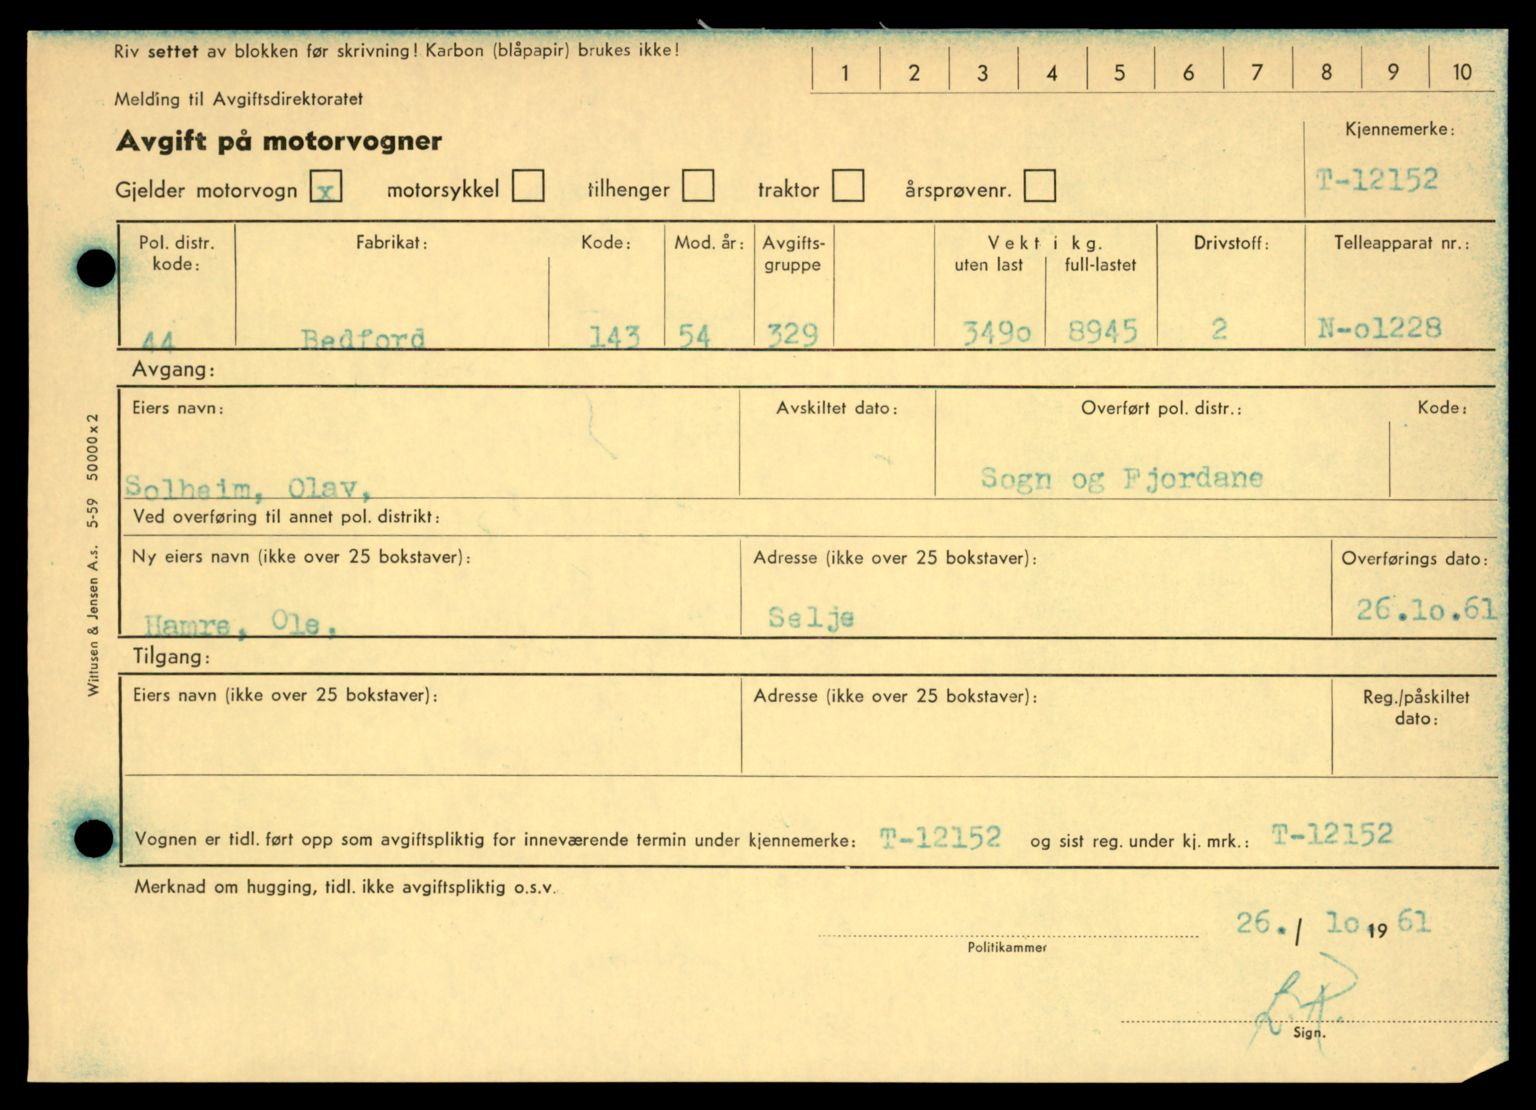 Riv settet av blokken før skrivning! Karbon (blåpapir) brukes ikke!
1 2 3 4 5 6 7 8 9 10
Melding til Avgiftsdirektoratet
Avgift på motorvogner
Kjennemerke:
T-12152
Gjelder motorvogn x motorsykkel tilhenger traktor årsprøvenr.
Pol. distr. kode: Fabrikat: Kode: Mod. år: Avgifts-gruppe Vekt i kg. uten last full-lastet Drivstoff: Telleapparat nr.:
44 Bedford 143 54 329 349o 8945 2 N-o1228
Avgang:
Eiers navn: Avskiltet dato: Overført pol. distr.: Kode:
Solheim, Olav, Sogn og Fjordane
Ved overføring til annet pol. distrikt:
Ny eiers navn (ikke over 25 bokstaver): Adresse (ikke over 25 bokstaver): Overførings dato:
Hamre, Ole, Selje 26.1o.61
Tilgang:
Eiers navn (ikke over 25 bokstaver): Adresse (ikke over 25 bokstaver): Reg./påskiltet dato:
Vognen er tidl. ført opp som avgiftspliktig for inneværende termin under kjennemerke: T-12152 og sist reg. under kj. mrk.: T-12152
Merknad om hugging, tidl. ikke avgiftspliktig o.s.v.
26. / 1o 19 61
Politikammer
Sign.
Wittusen & Jensen A.s. 5-59 50000 x 2